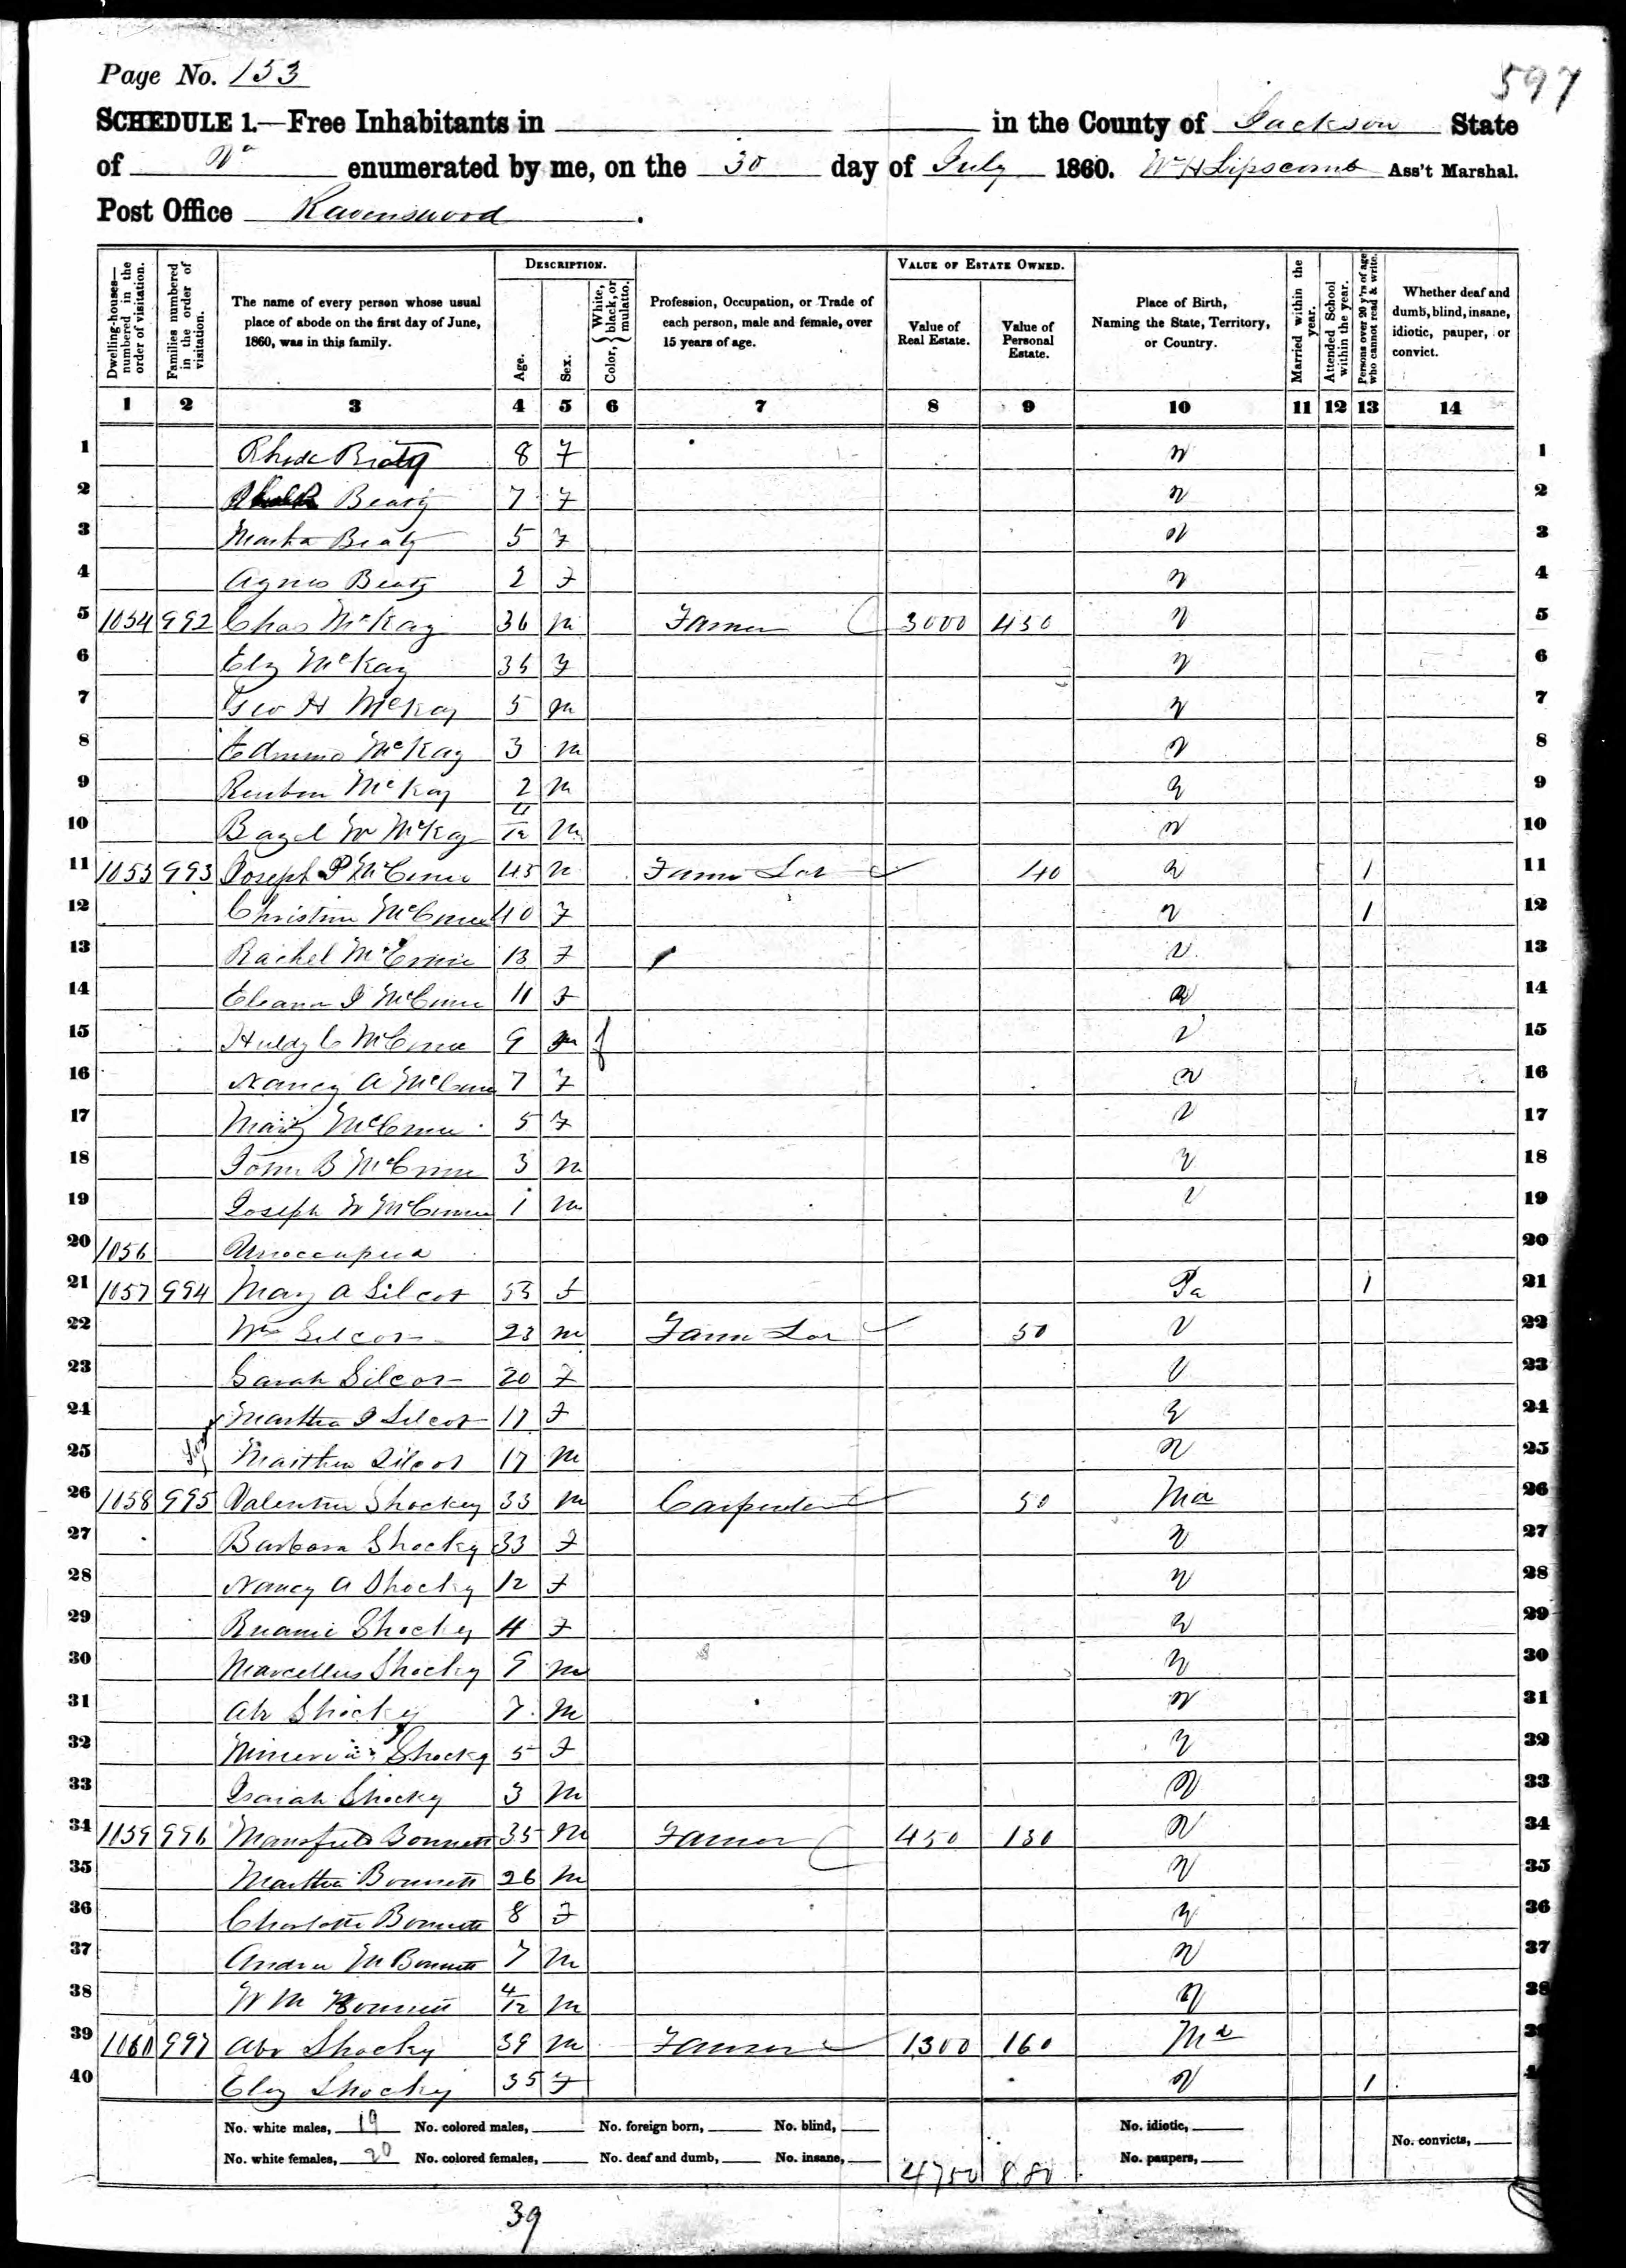 Page No. 153
597
SCHEDULE 1.—Free Inhabitants in in the County of Jackson State
of Va enumerated by me, on the 30 day of July 1860. Wm H Lipscomb Ass't Marshal.
Post Office Ravenswood.
Dwelling-houses—numbered in the order of visitation.
Families numbered in the order of visitation.
The name of every person whose usual place of abode on the first day of June, 1860, was in this family.
DESCRIPTION.
Age.
Sex.
Color, { White, black, or mulatto.
Profession, Occupation, or Trade of each person, male and female, over 15 years of age.
VALUE OF ESTATE OWNED.
Value of Real Estate.
Value of Personal Estate.
Place of Birth, Naming the State, Territory, or Country.
Married within the year.
Attended School within the year.
Persons over 20 y'rs of age who cannot read & write.
Whether deaf and dumb, blind, insane, idiotic, pauper, or convict.
1 2 3 4 5 6 7 8 9 10 11 12 13 14
1 Rhoda Beaty 8 F V 1
2 Beaty 7 F V 2
3 Martha Beaty 5 F V 3
4 Agnes Beaty 2 F V 4
5 1054 992 Chas McKay 36 M Farmer 3000 450 V 5
6 Elz McKay 36 F V 6
7 Geo H McKay 5 M V 7
8 McKay 3 M V 8
9 Reuben McKay 2 M V 9
10 Bazel W McKay /12 M V 10
11 1055 993 Joseph P 45 M Farm Lab 40 V 1 11
12 40 F V 1 12
13 Rachel 13 F V 13
14 11 F V 14
15 Huldy C 9 M f V 15
16 Nancy A 7 F V 16
17 Mary 5 F V 17
18 B 3 M V 18
19 Joseph W 1 M V 19
20 1056 Unoccupied 20
21 1057 994 Mary A Silcot 53 F Pa 1 21
22 Wm Silcot 23 M Farm Lab 50 V 22
23 Sarah Silcot 20 F V 23
24 Martha J Silcot 17 F V 24
25 Silcot 17 M V 25
26 1058 995 Valentine Shockey 33 M Carpenter 50 Md 26
27 Barbara Shocky 33 F V 27
28 Nancy A Shocky 12 F V 28
29 Shockey 4 F V 29
30 Marcellus Shocky 9 M V 30
31 Abr Shocky 7 M V 31
32 Minervia Shocky 5 F V 32
33 Isaiah Shocky 3 M V 33
34 1059 996 Mansfield Bonnett 35 M Farmer 450 130 V 34
35 Martha Bonnett 26 M V 35
36 Charlotte Bonnett 8 F V 36
37 Andrew M Bonnett 7 M V 37
38 W M Bonnett 4/12 M V 38
39 1060 997 Abr Shocky 39 M Farmer 1300 160 Md
40 Elez Shocky 35 F V 1
No. white males, 19 No. colored males, No. foreign born, No. blind, No. idiotic,
No. white females, 20 No. colored females, No. deaf and dumb, No. insane, 4750 880 No. paupers, No. convicts,
39